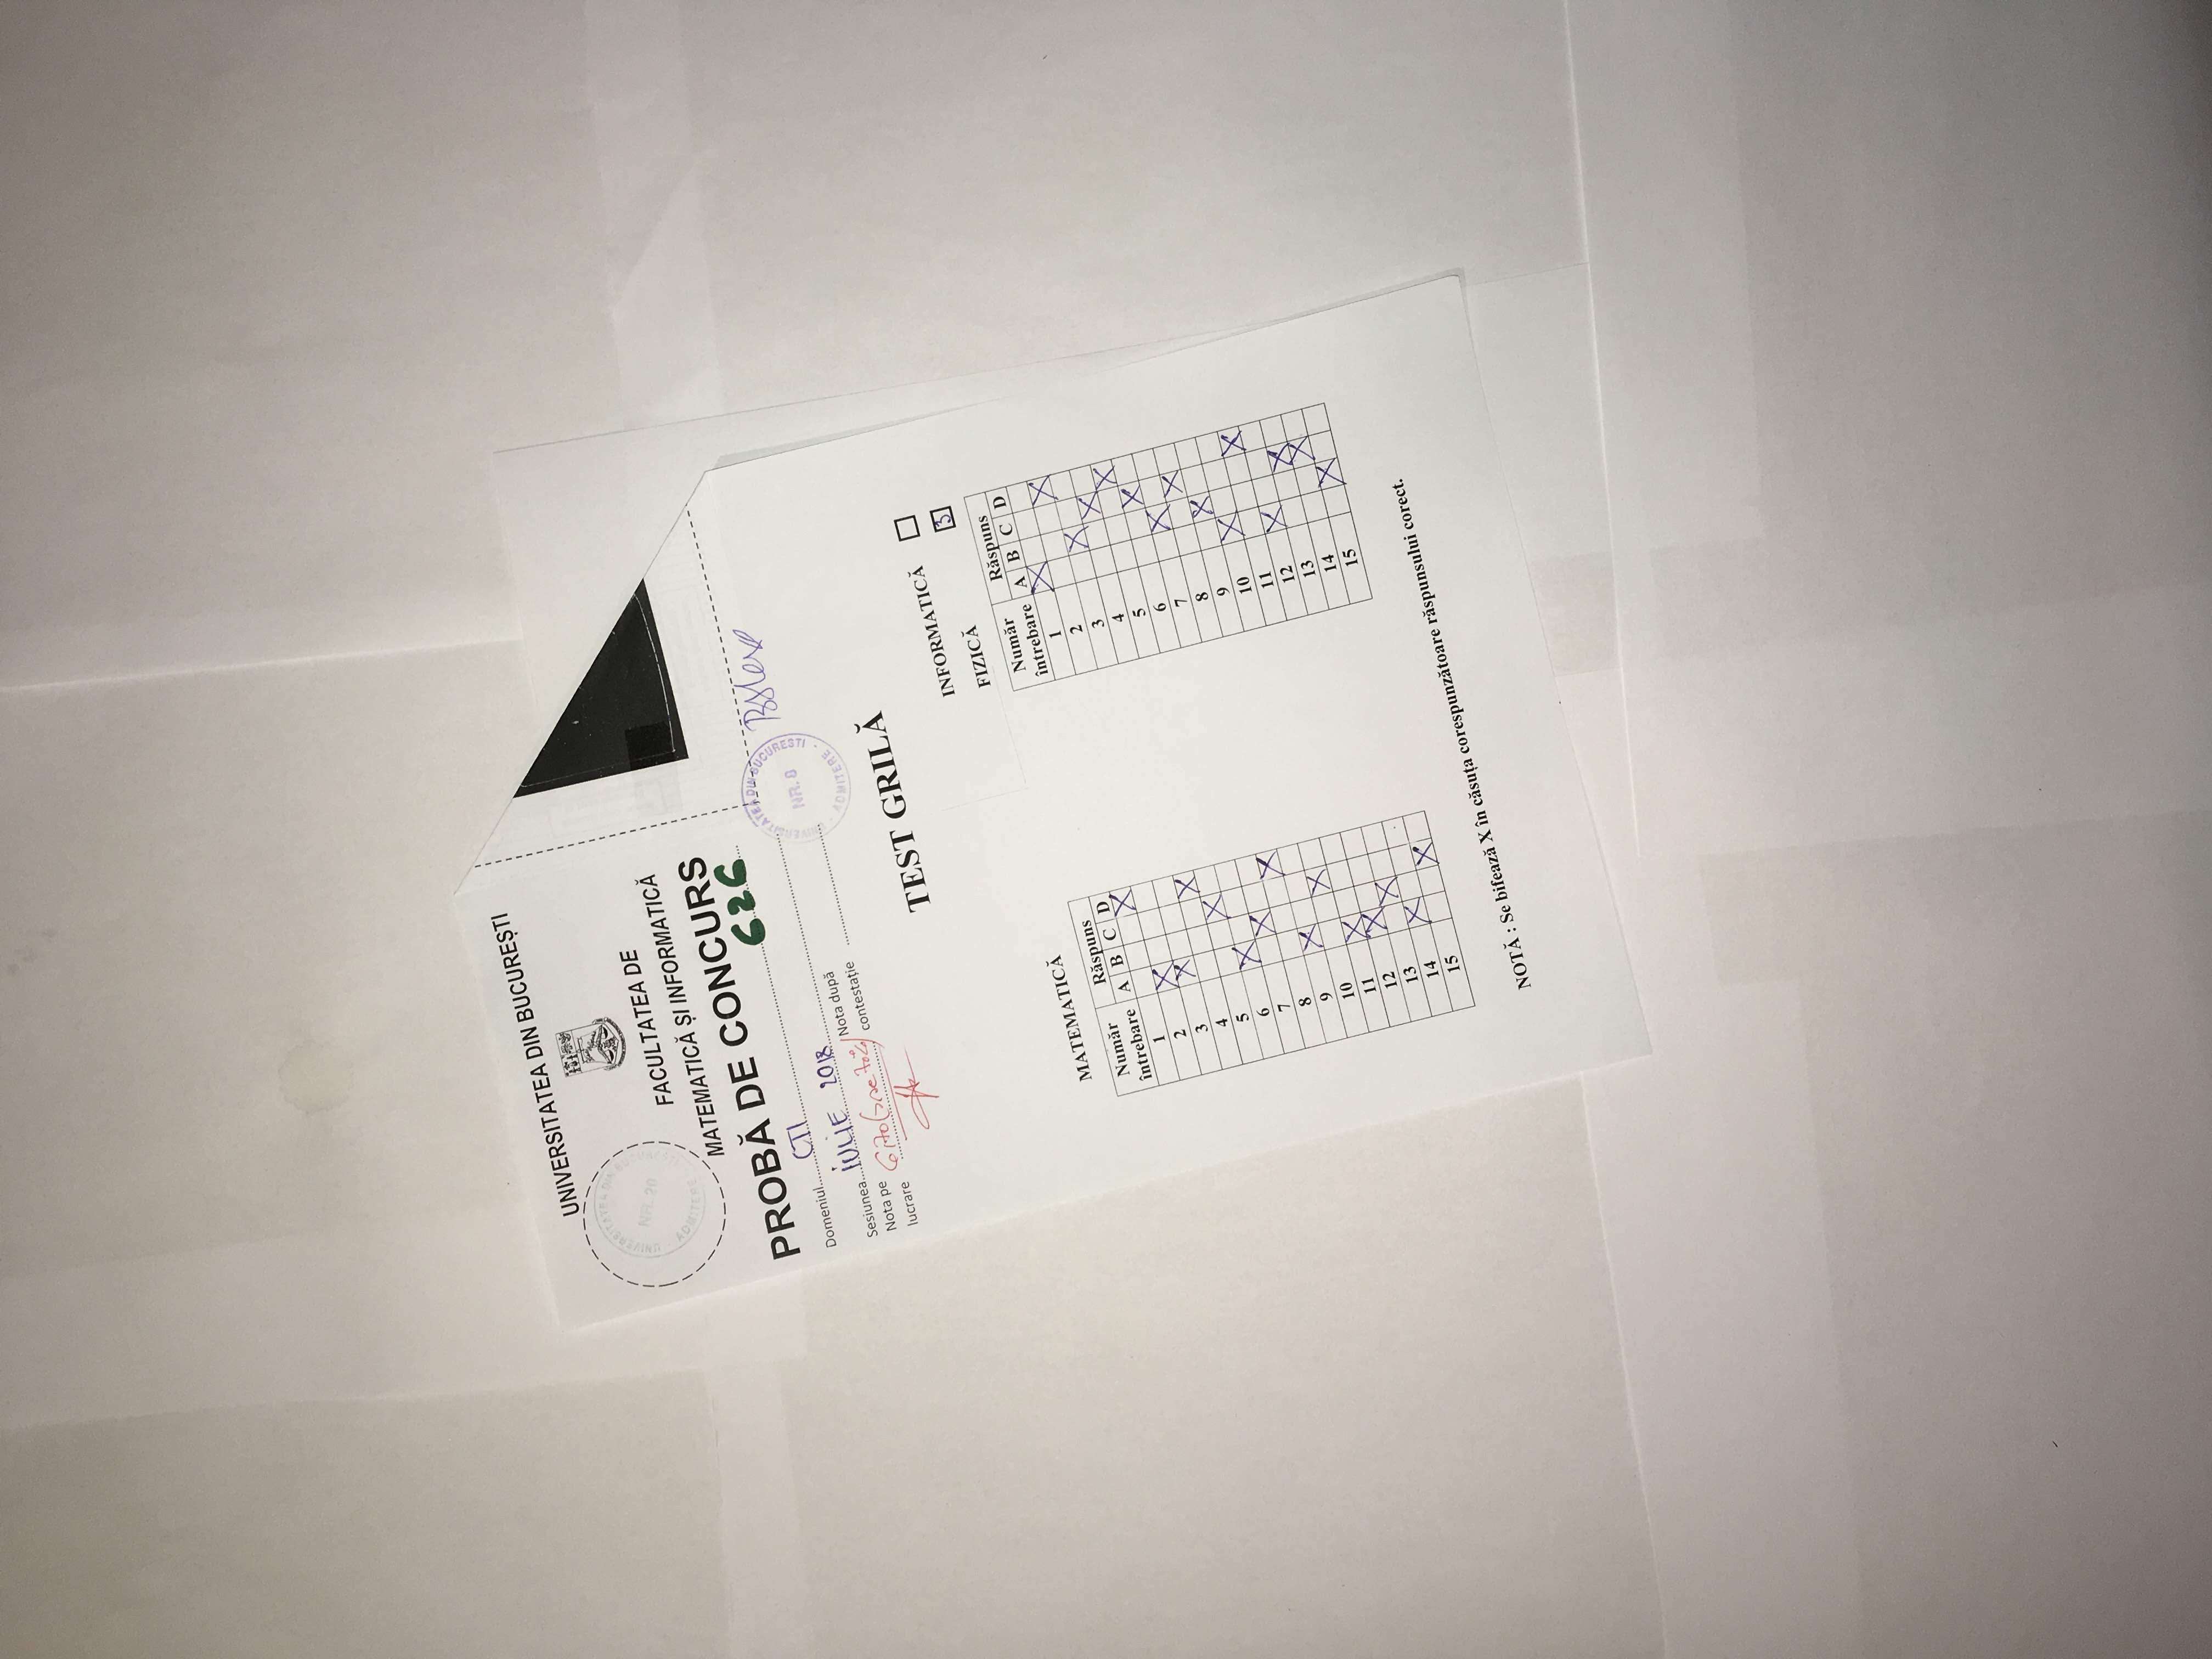 UNIVERSITATEA DIN BUCUREȘTI
UNIVERSITATEA DIN BUCUREȘTI
NR. 20
ADMITERE
FACULTATEA DE
MATEMATICĂ ȘI INFORMATICĂ
PROBĂ DE CONCURS
626
Domeniul CTI
Sesiunea IULIE 2018
Nota pe lucrare 6,70
Nota după contestație
UNIVERSITATEA DIN BUCURESTI
NR. 8
ADMITERE
TEST GRILĂ
INFORMATICĂ
FIZICĂ 3
MATEMATICĂ
Număr întrebare Răspuns
A B C D
1 X
2 X
3 X
4 X
5 X
6 X
7 X
8 X
9 X
10 X
11 X
12 X
13 X
14 X
15 X
Număr întrebare Răspuns
A B C D
1 X
2 X
3 X
4 X
5 X
6 X
7 X
8 X
9 X
10 X
11 X
12 X
13 X
14 X
15 X
NOTĂ : Se bifează X în căsuța corespunzătoare răspunsului corect.